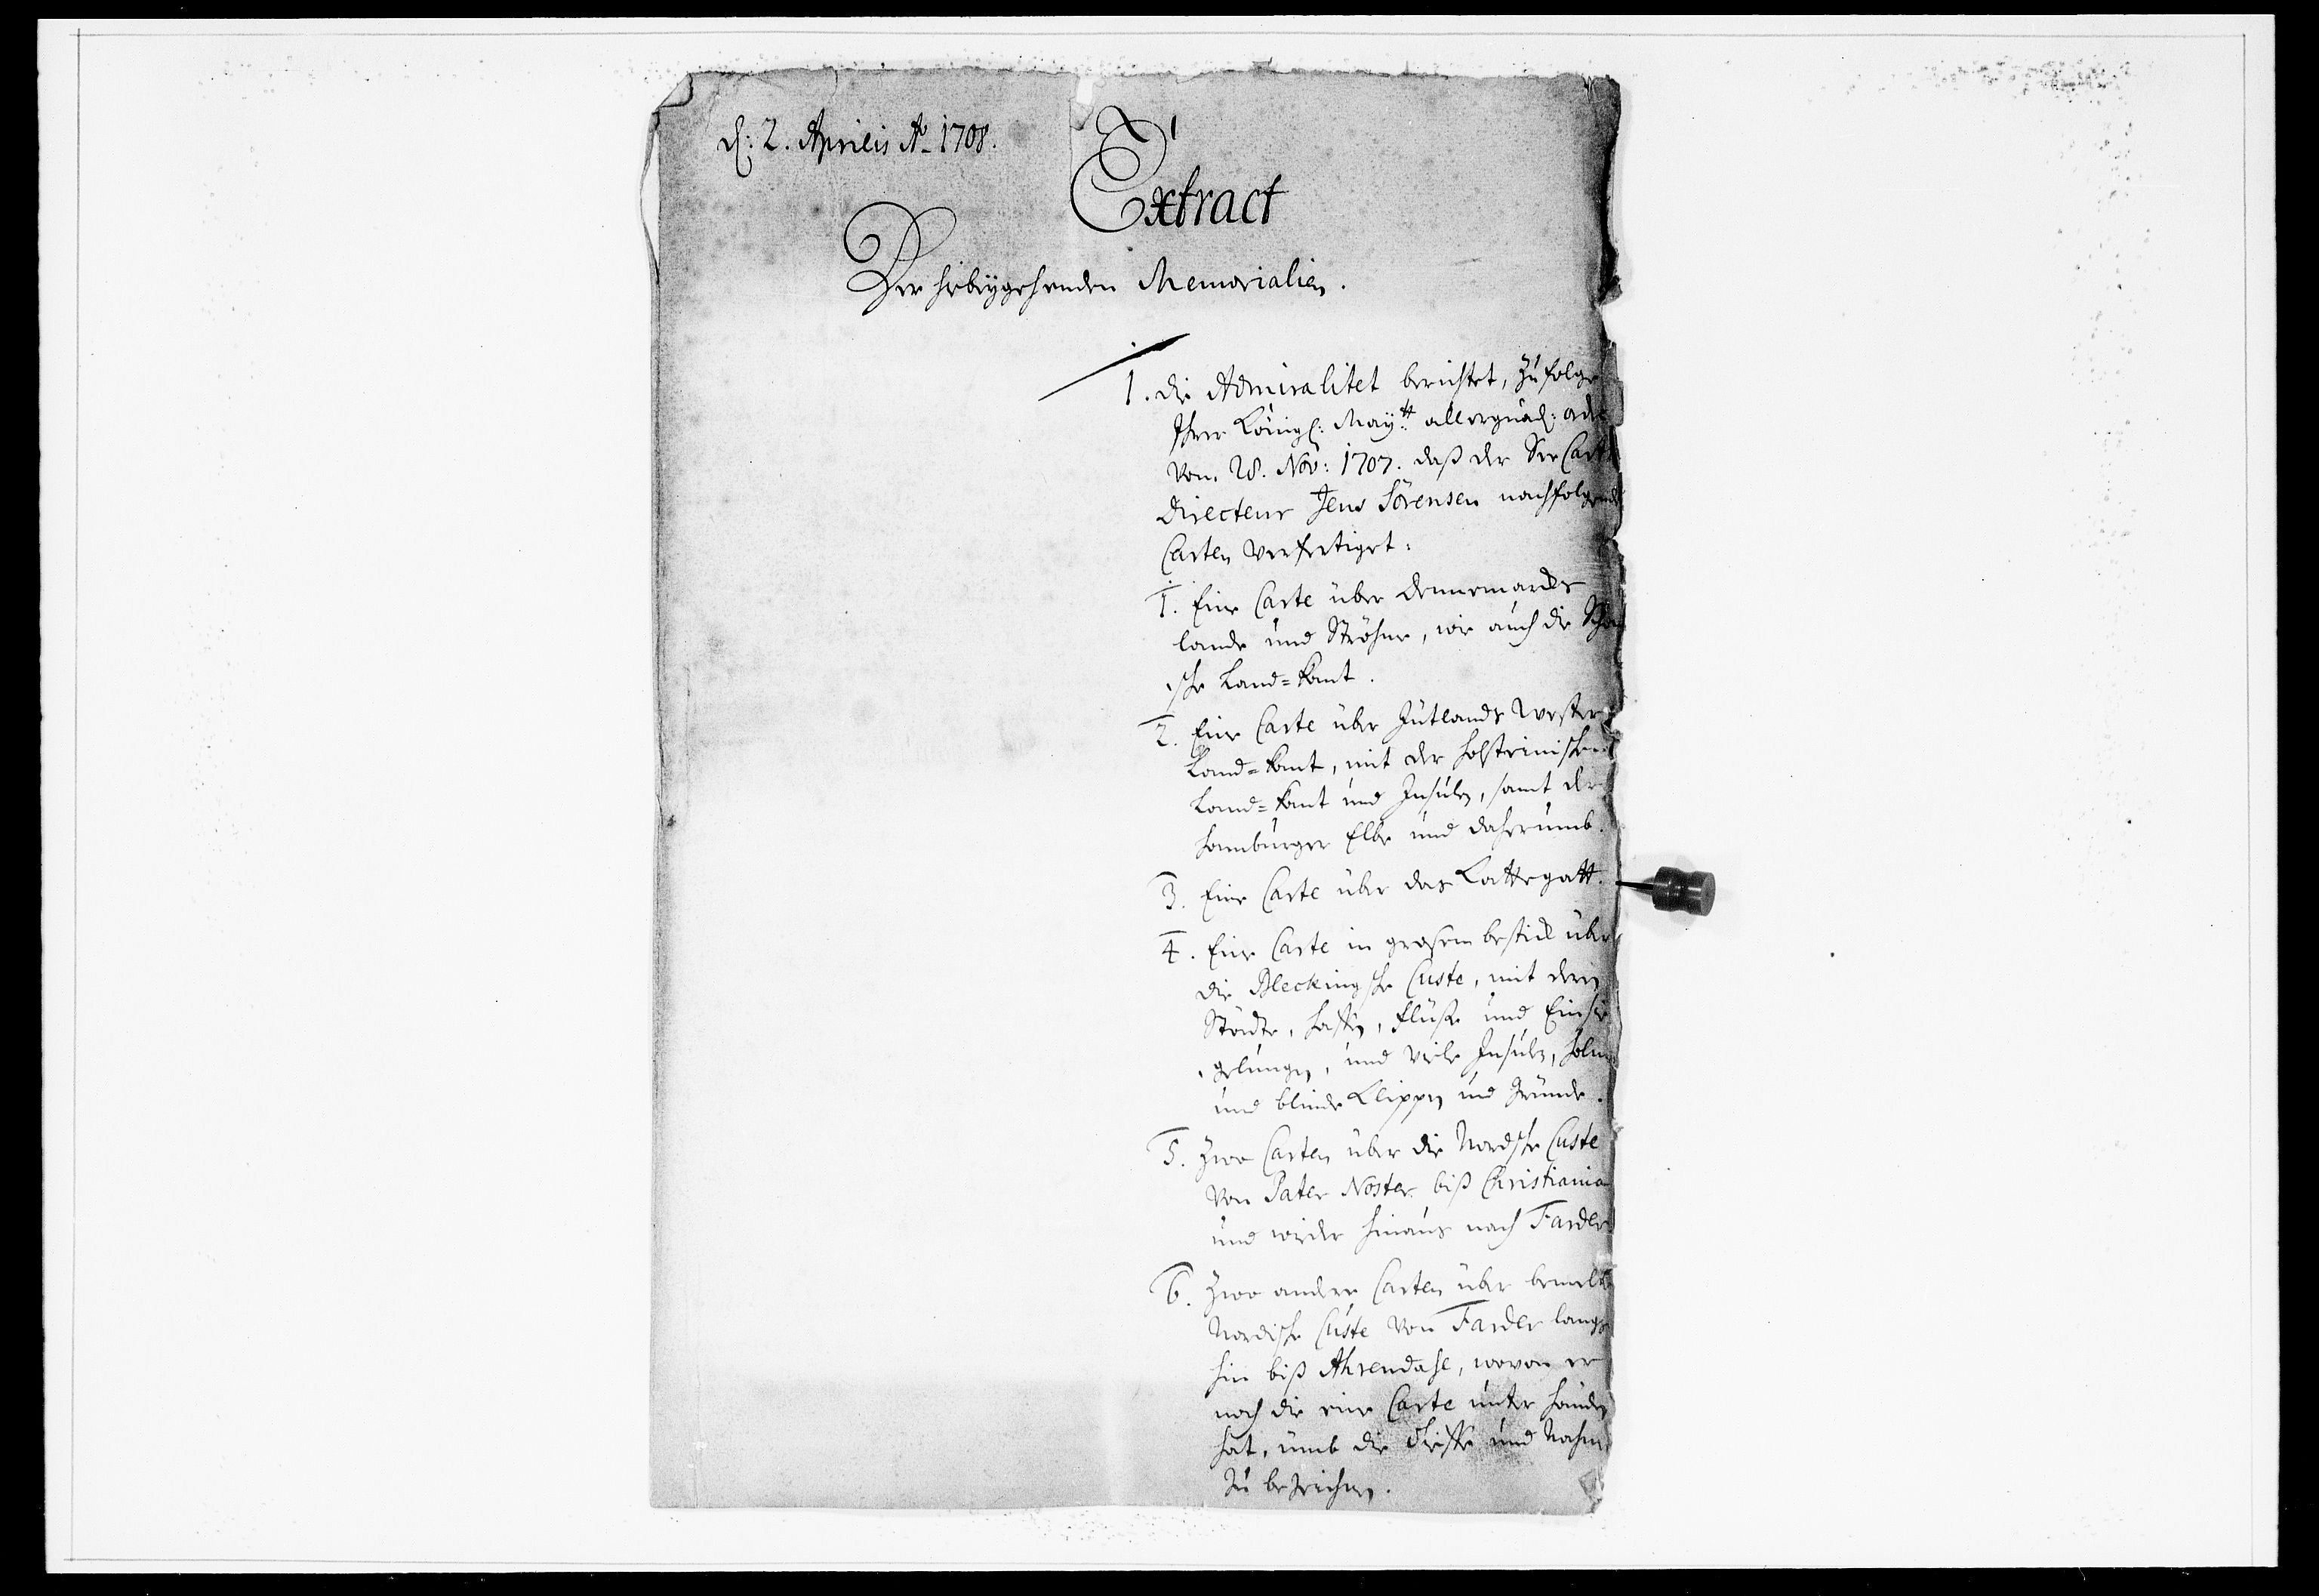 d: 2. Aprilis Aº 1708.
Extract
Der hiebeÿgehenden Memorialien.
1. die Admiralitet berichtet, zufolge
Ihrer Königl: Maytt: allergnäd: 
vom 28. Nov: 1707. daß der See Cart
Directeur Jens Sörensen nachfolgende
Carten verfertiget:
1. Eine Carte über Dennemarcks
lande und Ströhme, wie auch die Schon
sche Land=kant.
2. Eine Carte über Jütlands Wester
Land=kant, mit der Holsteinischen
Land=kant und Insuln, samt der
Hamburger Elbe und daherumb.
3. Eine Carte über das Kattegatt.
4. Eine Carte in großem bestick über
die Bleckingsche Custe, mit deren
Städte, Haffen, Flüße und Einsie
gelungen, und viele Insuln, Holme
und blinde Klippen und Gründe.
5. Zwo Carten über die Nordsche Custe
von Pater Noster biß Christiania
und wieder hinaus nach Farder
6. Zwo andere Carten über bemelte
Nordische Custe von Farder langs
hin biß Ahrendahl, wovon er
noch die eine Carte unter Händen
hat, umb die Tieffe und Nahmen
zu bezeichnen.